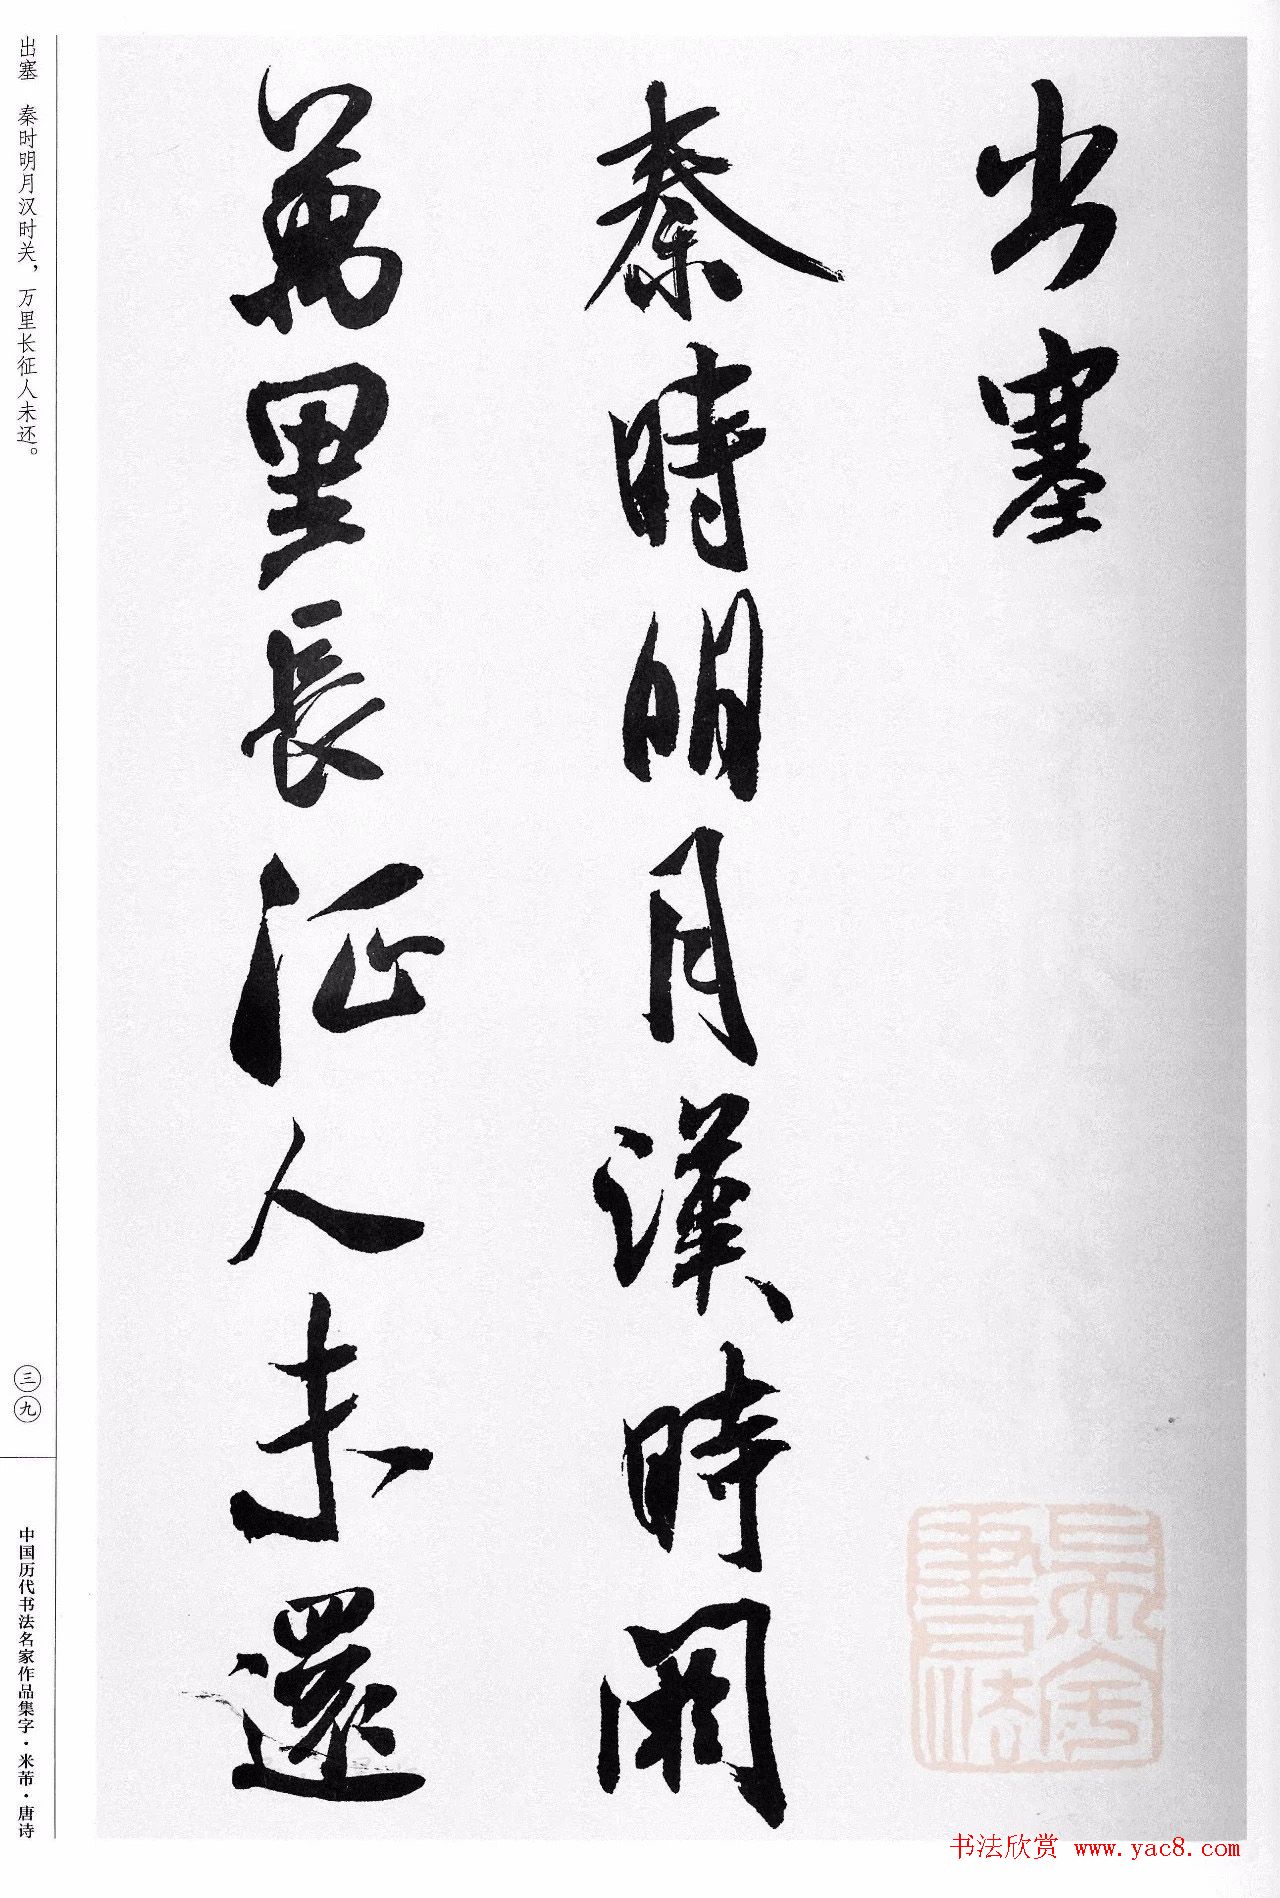 出塞
秦時明月漢時関
萬里長征人未還
出塞 秦时明月汉时关，万里长征人未还。
三九
中国历代书法名家作品集字·米芾·唐诗
书法欣赏 www.yac8.com